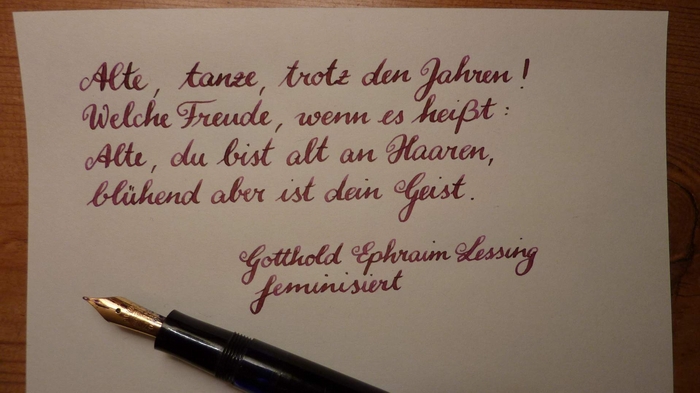 Alte, tanze, trotz den Jahren!
Welche Freude, wenn es heißt:
Alte, du bist alt an Haaren,
blühend aber ist dein Geist.
Gotthold Ephraim Lessing
feminisiert